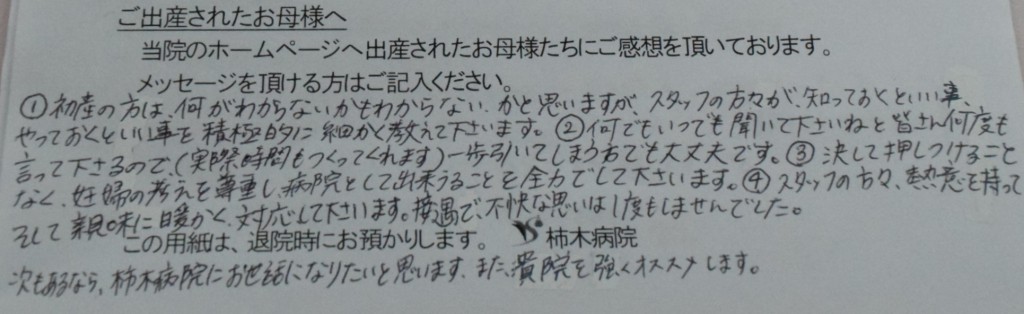 ご出産されたお母様へ
当院のホームページへ出産されたお母様たちにご感想を頂いております。
メッセージを頂ける方はご記入ください。
①初産の方は、何がわからないかもわからない、かと思いますが、スタッフの方々が、知っておくといい事、
やっておくといい事を積極的に細かく教えて下さいます。②何でもいつでも聞いて下さいねと皆さん何度も
言って下さるので、(実際時間もつくってくれます)一歩引いてしまう方でも大丈夫です。③決して押しつけること
なく、妊婦の考えを尊重し、病院として出来うることを全力でして下さいます。④スタッフの方々、熱意を持って
そして親味に暖かく、対応して下さいます。接遇で、不快な思いは1度もしませんでした。
この用紙は、退院時にお預かりします。 柿木病院
次もあるなら、柿木病院にお世話になりたいと思います、また、貴院を強くオススメします。